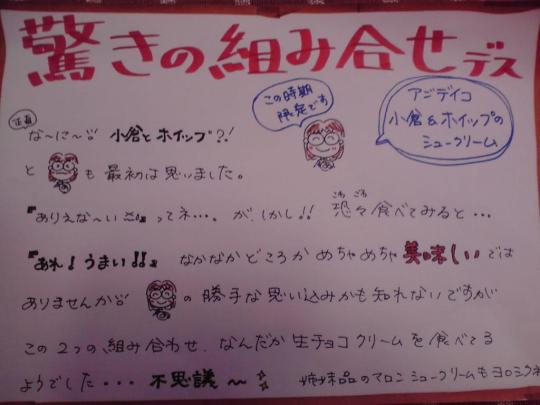 驚きの組み合せデス
この時期
限定です
アンデイコ
小倉&ホイップの
シュークリーム
正直
な〜に〜!! 小倉とホイップ?!
と も最初は思いました。
『ありえな〜い』ってネ…。が、しかし!! 恐々食べてみると…
こわごわ
『あれ!うまい!!』 なかなかどころかめちゃめちゃ美味しいでは
ありませんか!! の勝手な思い込みかも知れないですが
この2つの組み合わせ、なんだか生チョコクリームを食べてる
ようでした・・・ 不思議〜 姉妹品のマロンシュークリームもヨロシクネ